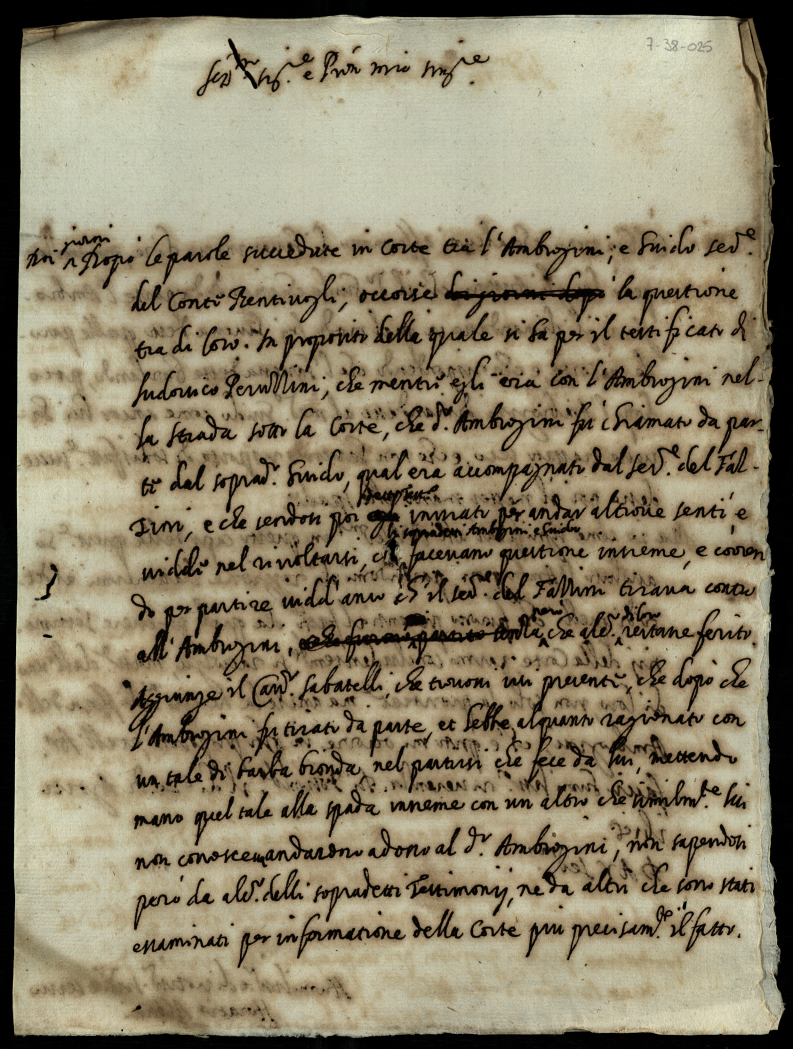 7-38-025
Ser.mo Sig.re e Pron mio sing.re
giorni
Doi dopò le parole succedute in Corte tra l'Ambrogini, e Guido ser.e
del Conte Bentivogli, occorse doi giorni dopo la questione
tra di loro. In proposito della quale si ha per il testificato di
Ludovico Perullini, che mentre egli era con l'Ambrogini nel-
la strada sotto la Corte, che d.o Ambrogini fu chiamato da par-
te dal soprad.o Guido, qual era accompagnato dal ser.e del Fal-
Tini, e che sendosi poi inviato per andar altrove sentì, e
li sopradetti Ambrogini e Guido
vidde nel rivoltarsi, che facevano questione insieme, e corren
do per partire vidd'anco ch'il ser.e del Faltini tirava contro
all'Ambrogini, che alc.o di loro restasse ferito.
Aggiunge il Cav.r Sabatelli, che trovossi ivi presente, che dopò che
l'Ambrogini fu tirato da parte, et hebbe alquanto ragionato con
un tale di barba bionda, nel partirsi che fece da lui, mettendo
mano quel tale alla spada insieme con un altro che similm.te lui
non conosceva, andarono adosso al d.o Ambrogini, non sapendosi
però da alc.o delli sopradetti Testimonij, ne da altri che sono stati
essaminati per informatione della Corte più precisam.te il fatto.